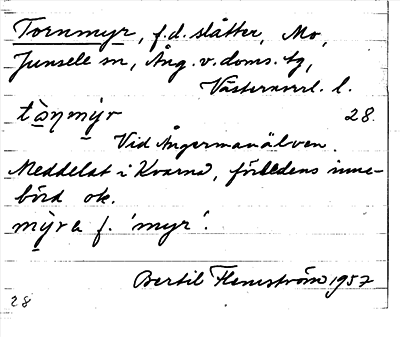 Tornmyr, f.d. slåtter, Mo,
Junsele sn, Ång. v. doms. tg,
Västernorrl. l.
tɑ̀ṇmỳr 28.
Vid Ångermanälven.
Meddelat i Kvarna, förledens inne-
börd ok.
mỳra f. 'myr'.
Bertil Flemström 1957
28